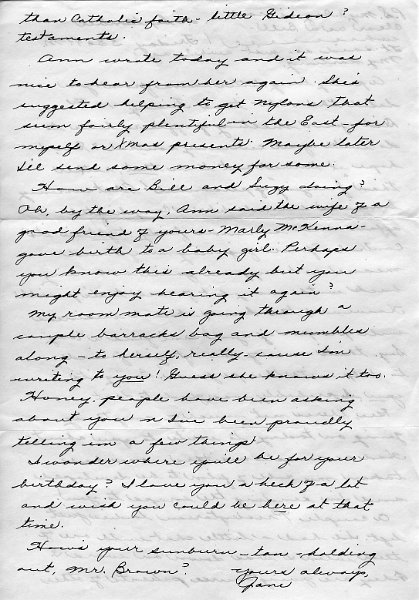 than Catholic faith - little Gideon?
testaments.
Ann wrote today and it was
nice to hear from her again. She
suggested helping to get Nylons that
seem fairly plentiful in the East - for
myself or Xmas presents. Maybe later
I'll send some money for some.
How are Bill and Suzy doing?
Oh, by the way, Ann said the wife of a
good friend of yours - Marly McKenna -
gave birth to a baby girl. Perhaps
you know this already but you
might enjoy hearing it again?
My room mate is going through a
couple barracks bag and mumbles
along - to herself, really - cause I'm
writing to you. Guess she knows it too.
Honey, people have been asking
about you n I've been proudly
telling im a few things
I wonder where you'll be for your
birthday? I love you a heck of a lot
and wish you could be here at that
time.
How's your sunburn - tan - holding
out, Mr. Brown?
Yours always,
Jane